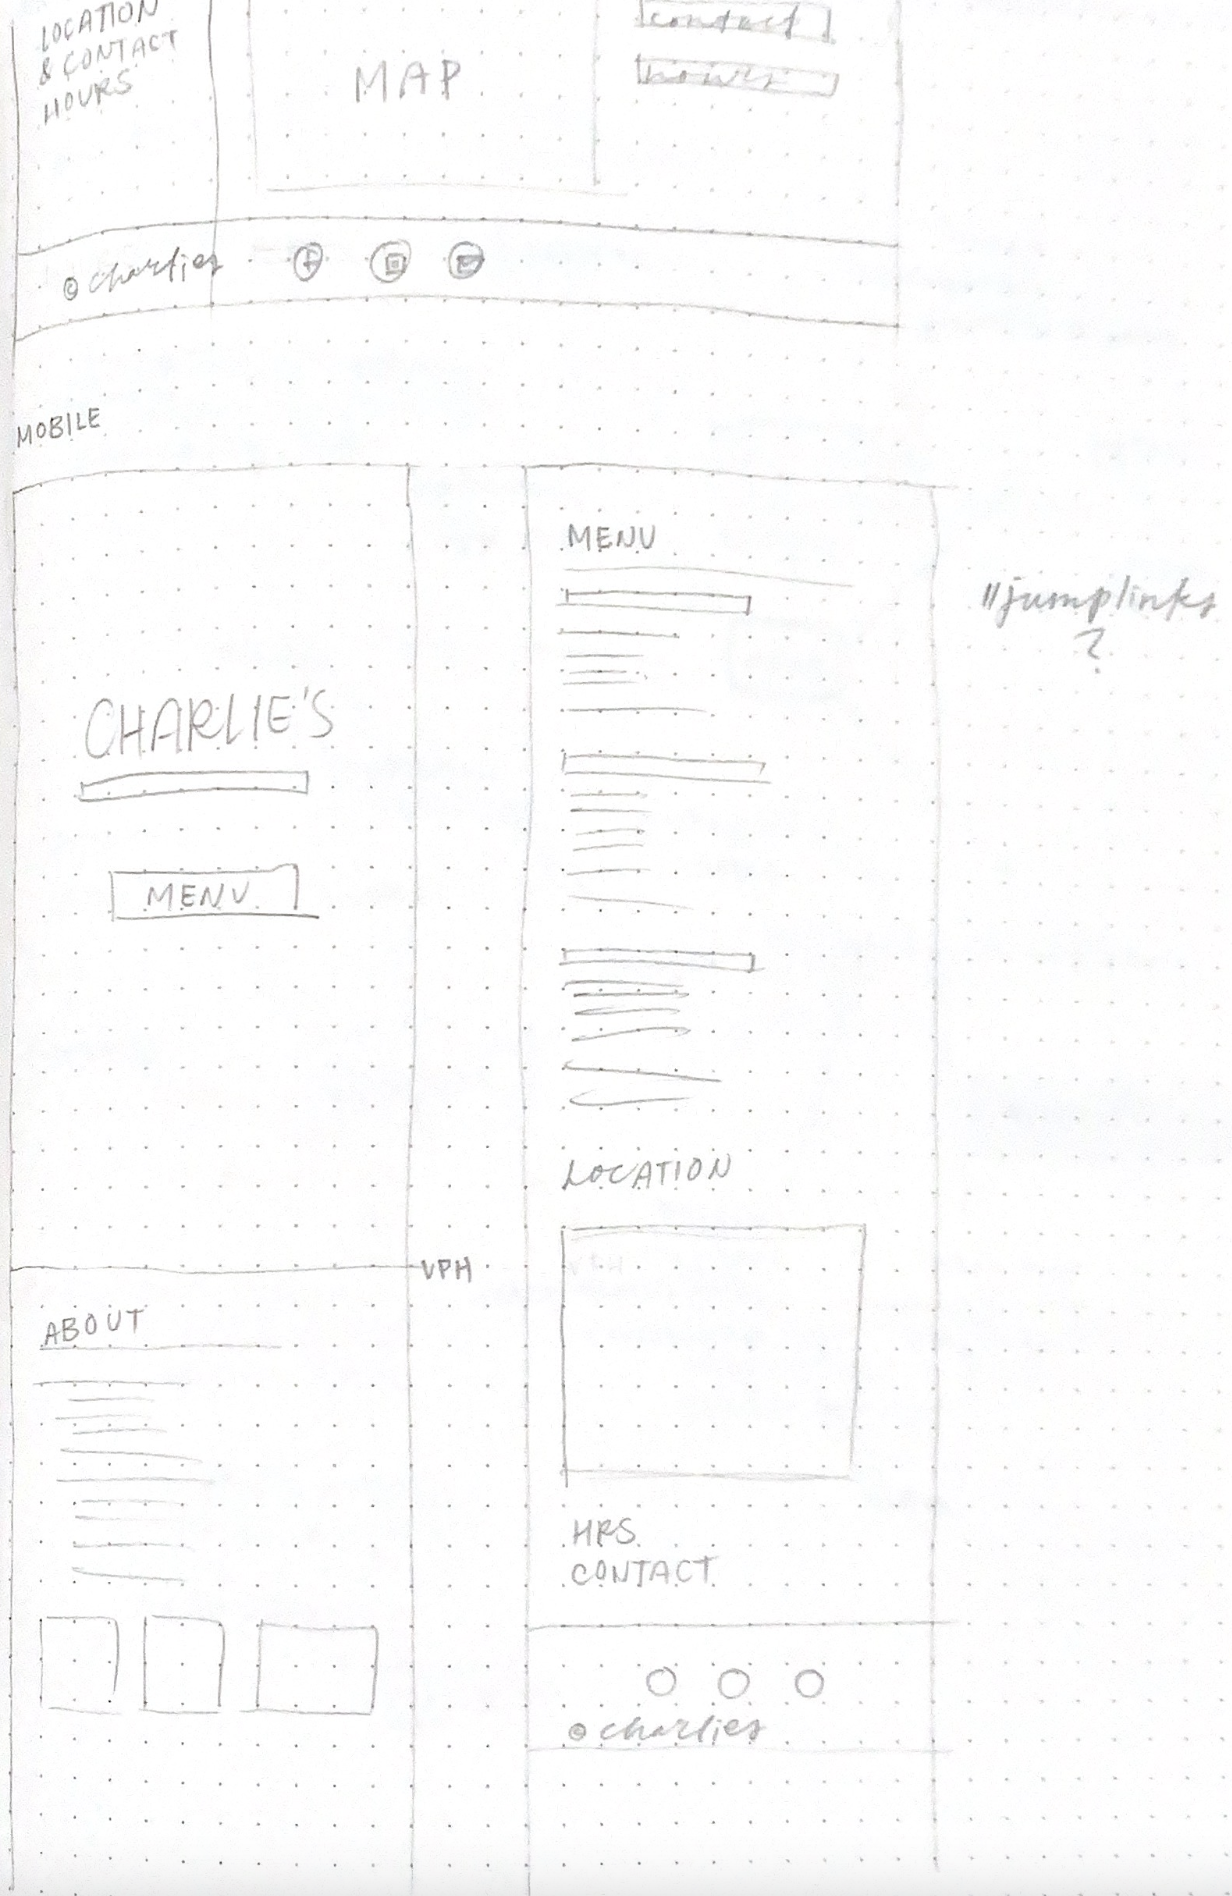 LOCATION
& CONTACT
HOURS
MAP
contact
hours
© charlies
MOBILE
CHARLIE'S
MENU
VPH
ABOUT
MENU
//jumplinks
?
LOCATION
HRS
CONTACT
© charlies